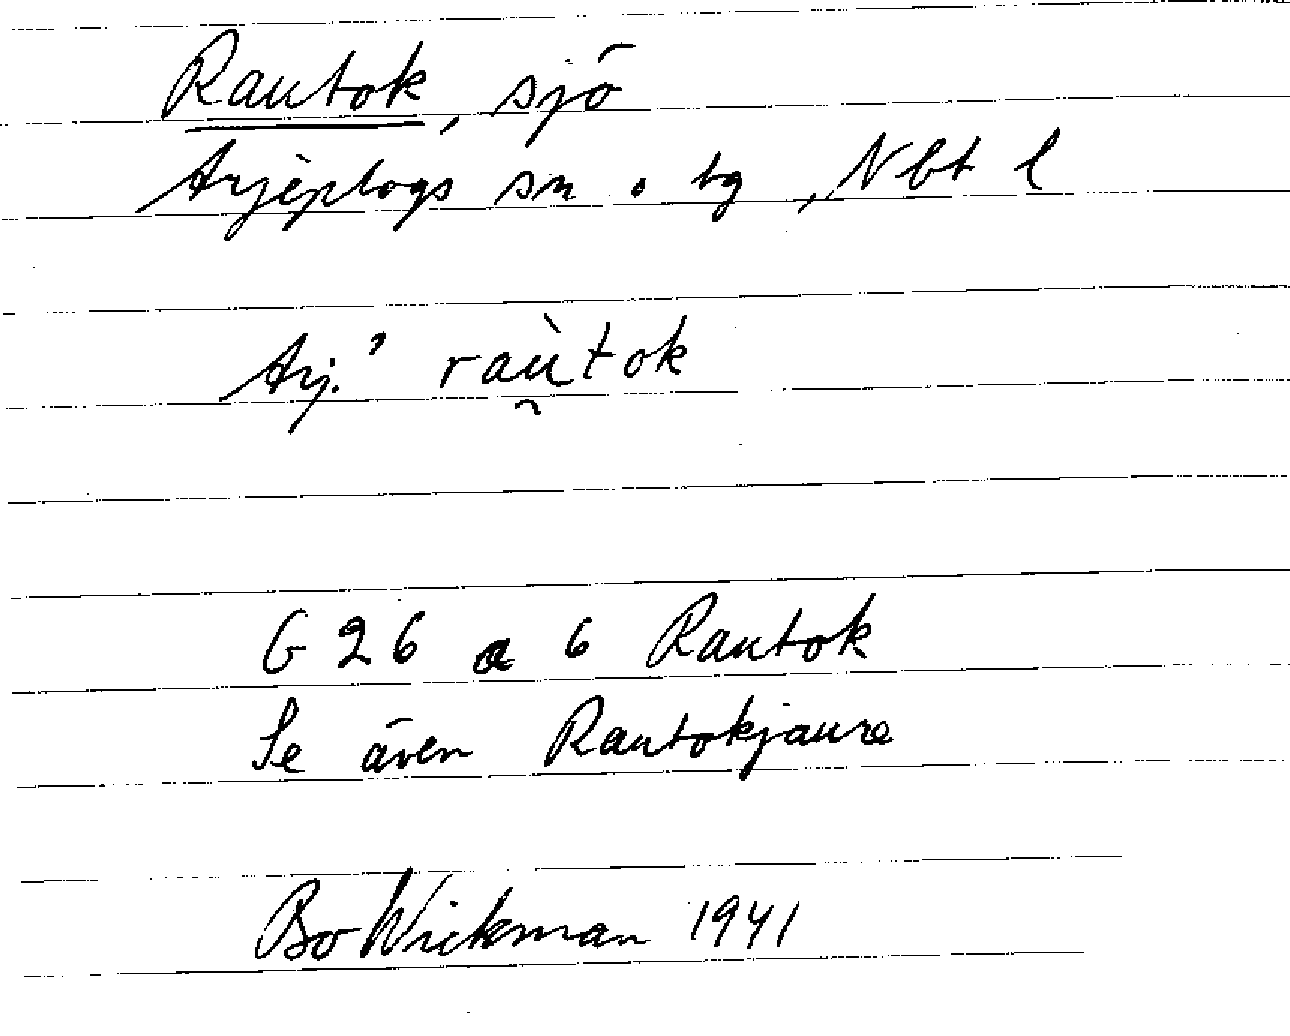 Rautok, sjö
Arjeplogs sn o tg, Nbt l
Arj.' raù̯tok
G 26 a 6 Rautok
Se även Rautokjaure
Bo Wickman 1941